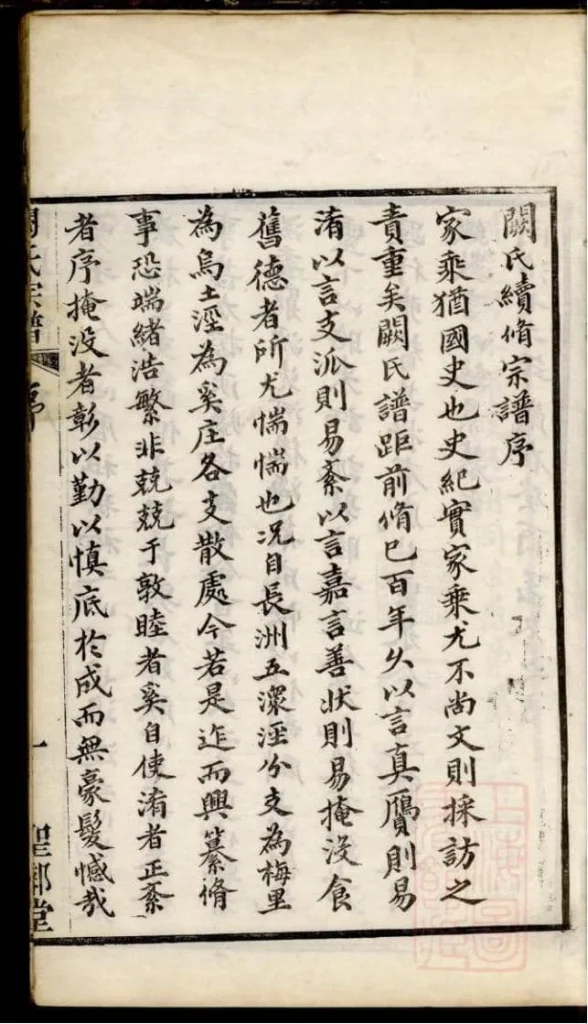 闕氏續脩宗譜序
家乘猶國史也史紀實家乘尤不尚文則採訪之
責重矣闕氏譜距前脩已百年久以言真贋則易
淆以言支派則易紊以言嘉言善狀則易掩没食
舊德者所尤惴惴也况自長洲五潨涇分支為梅里
為烏土涇為奚庄各支散處今若是迮而興纂脩
事恐端緒浩繁非兢兢于敦睦者奚自使淆者正紊
者序掩没者彰以勤以慎底於成而無豪髮憾哉
闕氏宗譜
序
一
聖鄉堂